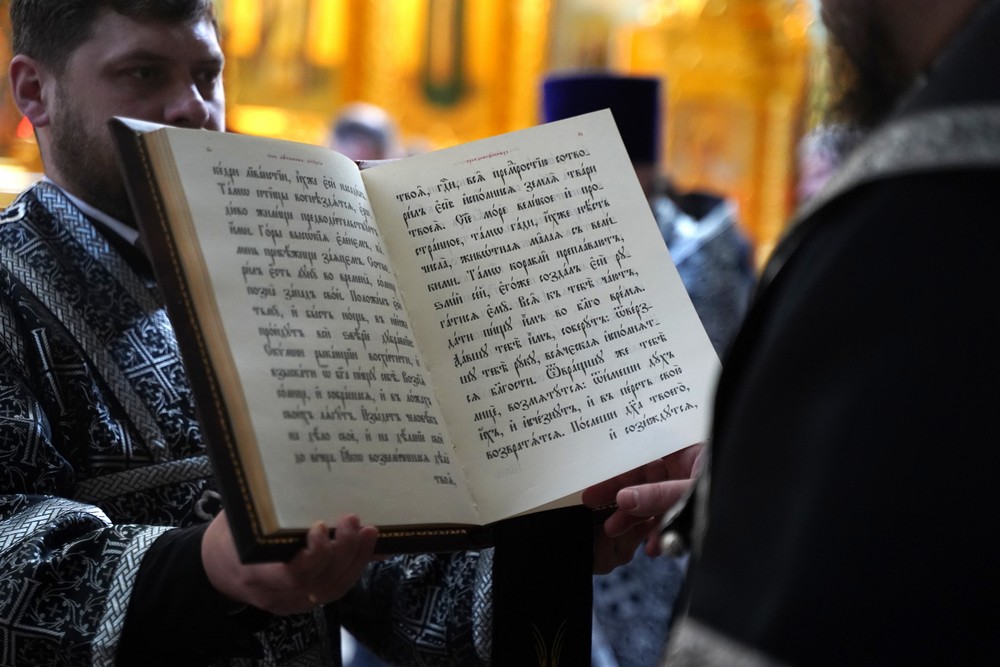 кедри лїва́нстїи, и҆̀хже є҆сѝ насади́лъ.
Та́мѡ пти̑цы вогнѣздѧ́тсѧ,
є҆рѡді́ево жили́ще предводи́тельствꙋетъ
и҆́ми. Го́ры высѡ́кїѧ є҆ле́немъ, ка́-
мень прибѣ́жище за́ѧцємъ. Сотво-
ри́лъ є҆́сть лꙋнꙋ̀ во времена̀, со́лнце
позна̀ за́падъ сво́й. Положи́лъ є҆сѝ
тьмꙋ̀, и҆ бы́сть но́щь, въ не́йже
про́йдꙋтъ всѝ ѕвѣ́рїе дꙋбра́внїи.
Скѵ́мни рыка́ющїи восхи́тити, и҆
взыска́ти ѿ бг҃а пи́щꙋ себѣ̀. Возсїѧ̀
со́лнце, и҆ собра́шасѧ, и҆ въ ло́жахъ
свои́хъ лѧ́гꙋтъ. И҆зы́детъ человѣ́къ
на дѣ́ло своѐ, и҆ на дѣ́ланїе своѐ
до ве́чера. Ꙗ҆́кѡ возвели́чишасѧ дѣла̀
твоѧ̑,
твоѧ̑, гдⷭ҇и, всѧ̑ премⷣростїю сотво-
ри́лъ є҆сѝ: и҆спо́лнисѧ землѧ̀ тва́ри
твоеѧ̀. Сїѐ мо́ре вели́кое и҆ про-
стра́нное, та́мѡ га́ди, и҆̀хже нѣ́сть
числа̀, живѡ́тнаѧ ма̑лаѧ съ вели́-
кими. Та́мѡ корабли̑ препла́ваютъ,
ѕмі́й се́й, є҆го́же созда́лъ є҆сѝ рꙋ-
га́тисѧ є҆мꙋ̀. Всѧ̑ къ тебѣ̀ ча́ютъ,
да́ти пи́щꙋ и҆̀мъ во бла́го вре́мѧ.
Да́вшꙋ тебѣ̀ и҆̀мъ, соберꙋ́тъ: ѿве́рз-
шꙋ тебѣ̀ рꙋ́кꙋ, всѧ́ческаѧ и҆спо́лнѧт-
сѧ бла́гости. Ѿвра́щшꙋ же тебѣ̀
лицѐ, возмѧтꙋ́тсѧ: ѿи́меши дꙋ́хъ
и҆́хъ, и҆ и҆сче́знꙋтъ, и҆ въ пе́рсть свою̀
возвратѧ́тсѧ. По́слеши дх҃а твоегѡ̀,
и҆ сози́ждꙋтсѧ,